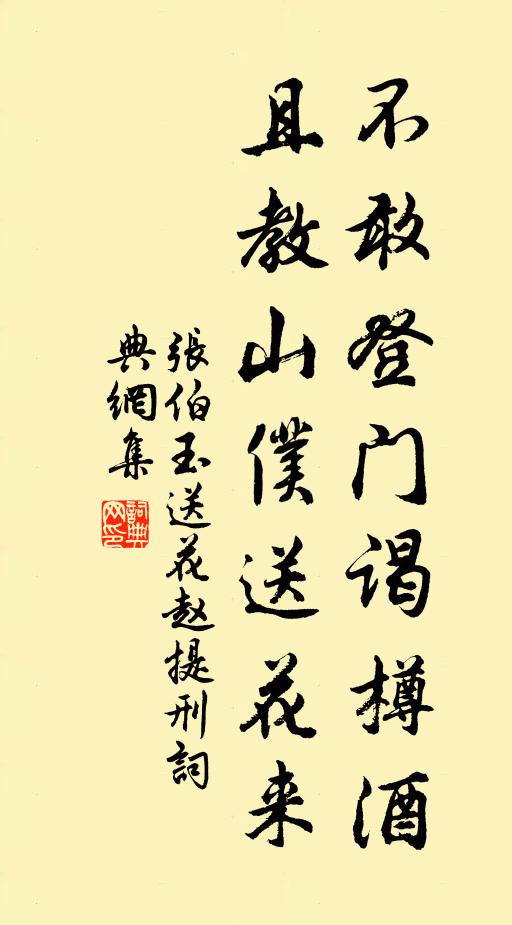 不敢登门谒樽酒
且教山僕送花来
張伯玉送花赵提刑詞
典網集
詞典
网印